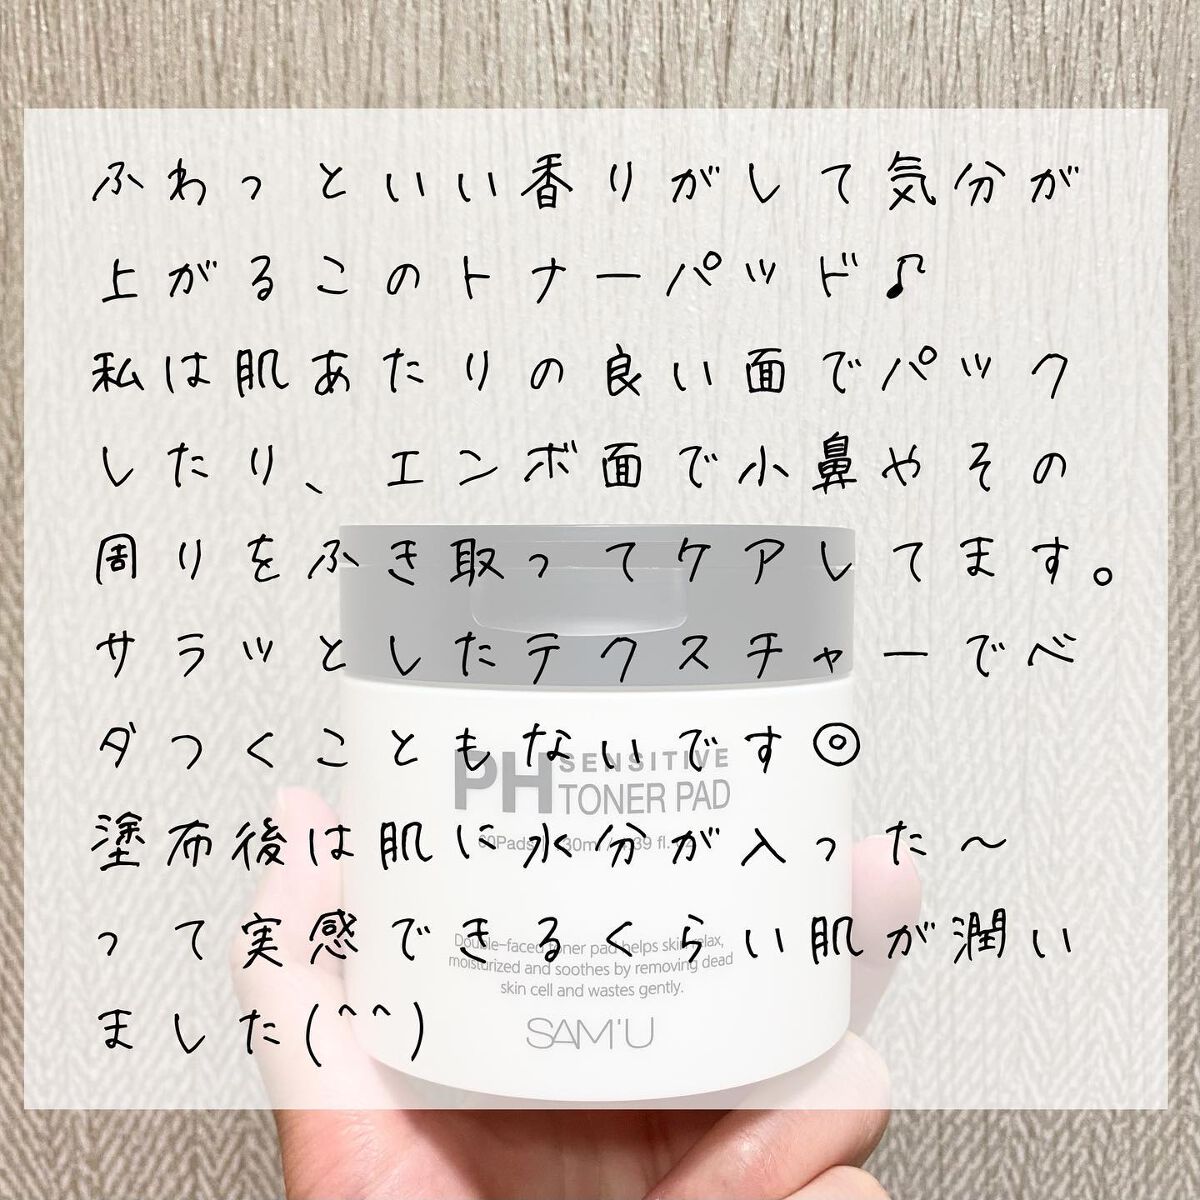 ふわっといい香りがして気分が
上がるこのトナーパッド♪
私は肌あたりの良い面でパック
したり、エンボ面で小鼻やその
周りをふき取ってケアしてます。
サラッとしたテクスチャーでベ
ダつくこともないです◎
塗布後は肌に水分が入った〜
って実感できるくらい肌が潤い
ました(^^)
PH SENSITIVE
TONER PAD
60Pads
Double-faced toner pad helps skin relax,
moisturized and soothes by removing dead
skin cell and wastes gently.
SAM'U